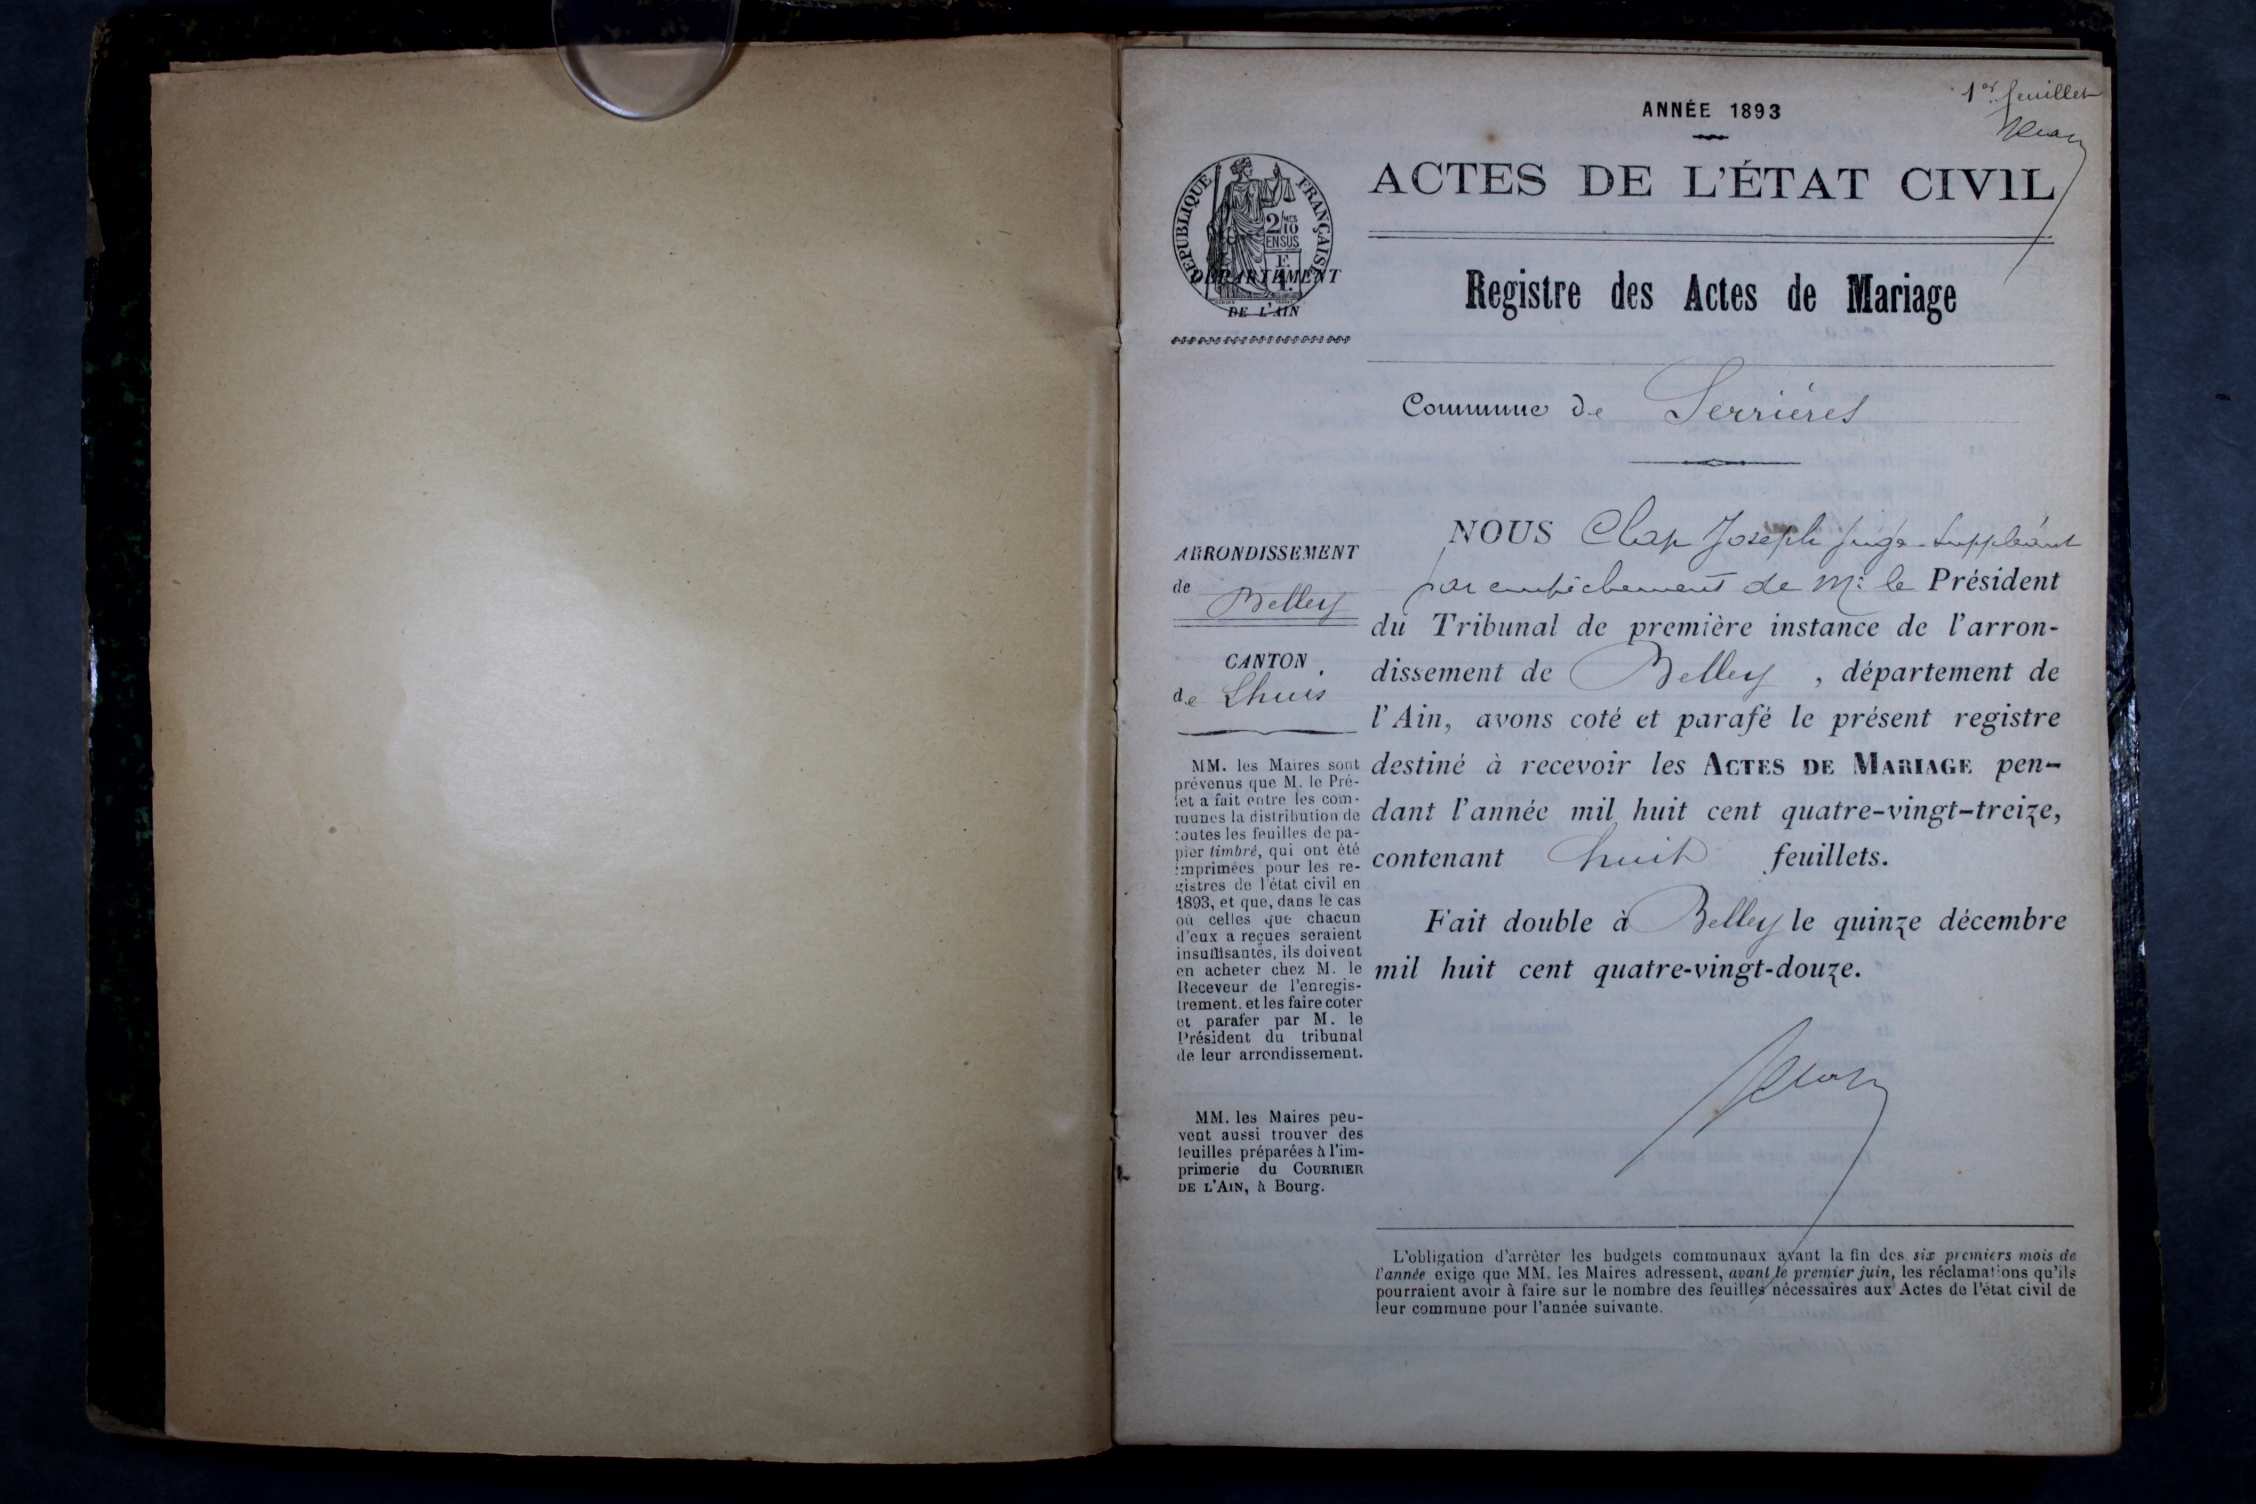 1er feuillet
ANNÉE 1893
ACTES DE L'ÉTAT CIVIL
RÉPUBLIQUE FRANÇAISE
2/10 MES
EN SUS
DÉPARTEMENT
DE L'AIN
Registre des Actes de Mariage
Commune de Serrières
ARRONDISSEMENT
de Belley
CANTON
de Lhuis
MM. les Maires sont
prévenus que M. le Pré-
fet a fait entre les com-
munes la distribution de
toutes les feuilles de pa-
pier timbré, qui ont été
imprimées pour les re-
gistres de l'état civil en
1893, et que, dans le cas
où celles que chacun
d'eux a reçues seraient
insuffisantes, ils doivent
en acheter chez M. le
Receveur de l'enregis-
trement. et les faire coter
et parafer par M. le
Président du tribunal
de leur arrondissement.
MM. les Maires peu-
vent aussi trouver des
feuilles préparées à l'im-
primerie du COURRIER
DE L'AIN, à Bourg.
NOUS Joseph juge-suppléant
par empêchement de Mr le Président
du Tribunal de première instance de l'arron-
dissement de Belley, département de
l'Ain, avons coté et parafé le présent registre
destiné à recevoir les ACTES DE MARIAGE pen-
dant l'année mil huit cent quatre-vingt-treize,
contenant huit feuillets.
Fait double à Belley le quinze décembre
mil huit cent quatre-vingt-douze.
L'obligation d'arrêter les budgets communaux avant la fin des six premiers mois de
l'année exige que MM. les Maires adressent, avant le premier juin, les réclamations qu'ils
pourraient avoir à faire sur le nombre des feuilles nécessaires aux Actes de l'état civil de
leur commune pour l'année suivante.